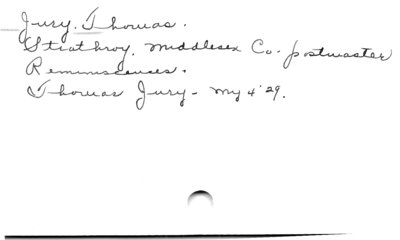 Jury, Thomas.
Strathroy, Middlesex Co. postmaster
Reminiscenses.
Thomas Jury - My 4 '29.